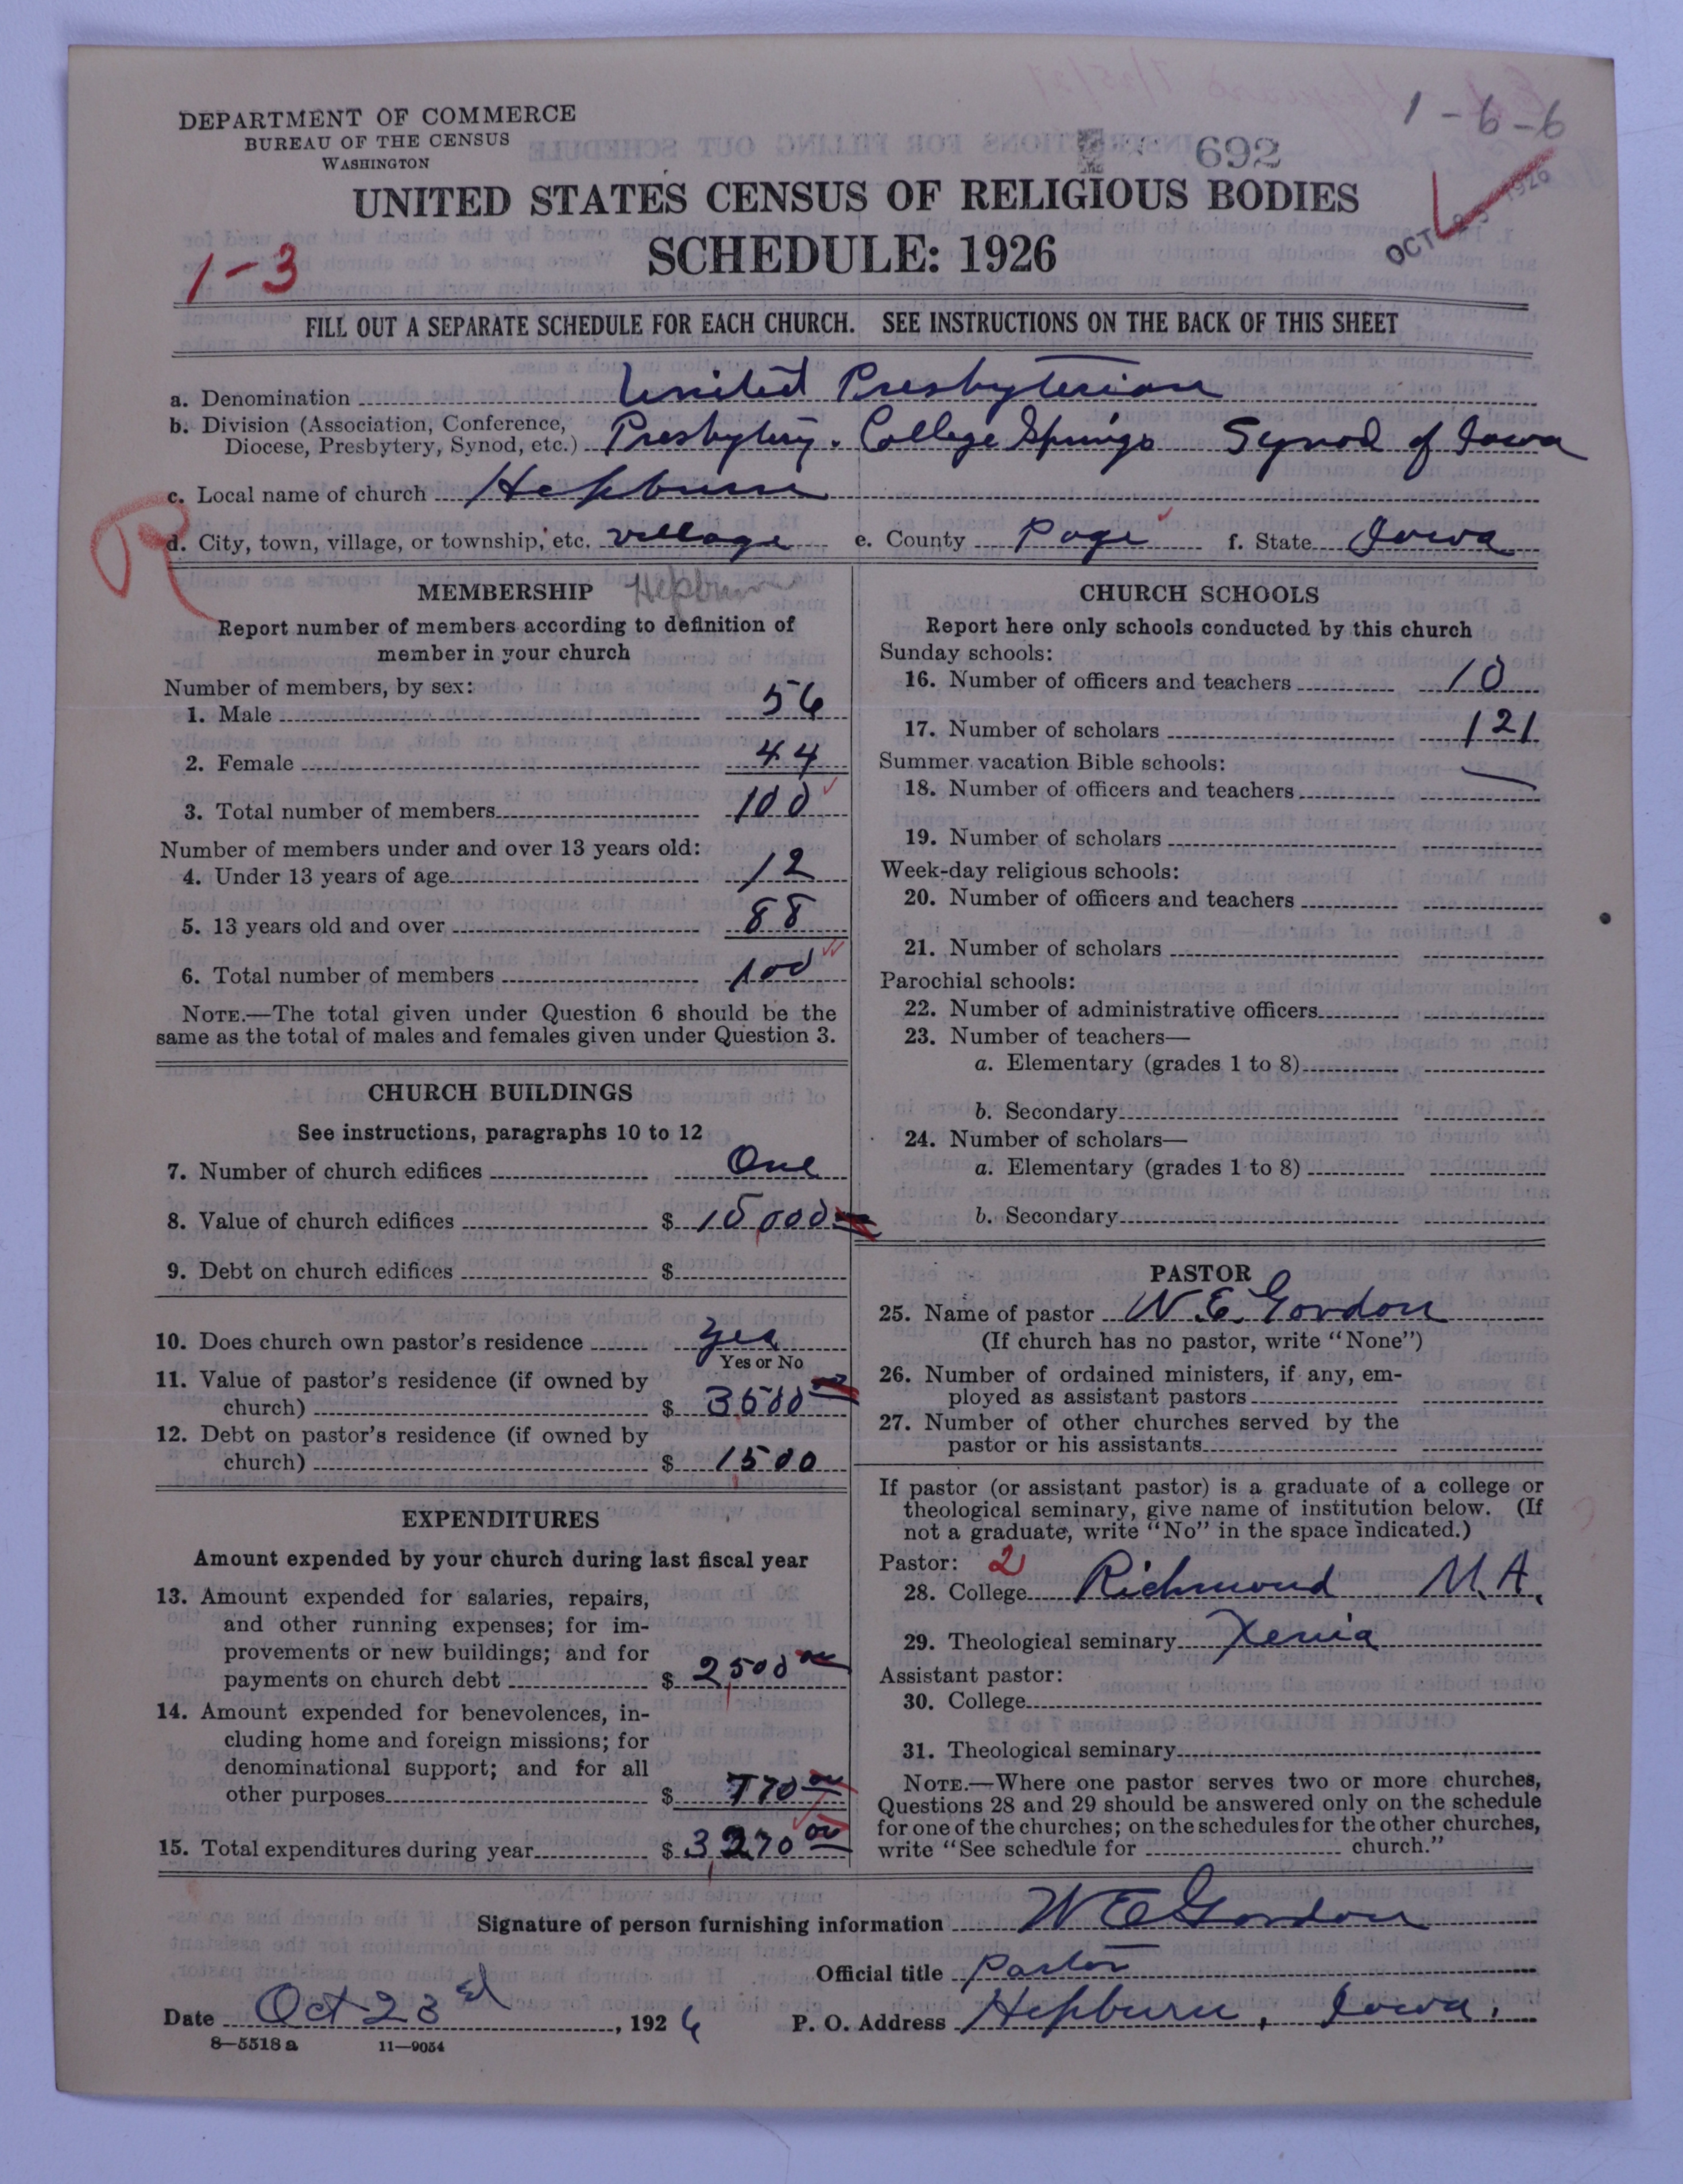 1-6-6
DEPARTMENT OF COMMERCE
BUREAU OF THE CENSUS
WASHINGTON
692
UNITED STATES CENSUS OF RELIGIOUS BODIES
SCHEDULE: 1926
OCT 1926
1-3
FILL OUT A SEPARATE SCHEDULE FOR EACH CHURCH. SEE INSTRUCTIONS ON THE BACK OF THIS SHEET
a. Denomination United Presbyterian
b. Division (Association, Conference, Diocese, Presbytery, Synod, etc.) Presbytery. College Springs Synod of Iowa
c. Local name of church Hepburn
R
d. City, town, village, or township, etc. village e. County Page f. State Iowa
MEMBERSHIP Hepburn
Report number of members according to definition of
member in your church
Number of members, by sex:
1. Male 56
2. Female 44
3. Total number of members 100
Number of members under and over 13 years old:
4. Under 13 years of age 12
5. 13 years old and over 88
6. Total number of members 100
NOTE.—The total given under Question 6 should be the
same as the total of males and females given under Question 3.
CHURCH BUILDINGS
See instructions, paragraphs 10 to 12
7. Number of church edifices One
8. Value of church edifices $ 15000
9. Debt on church edifices $
10. Does church own pastor's residence yes
Yes or No
11. Value of pastor's residence (if owned by
church) $ 3500 00
12. Debt on pastor's residence (if owned by
church) $ 1500
EXPENDITURES
Amount expended by your church during last fiscal year
13. Amount expended for salaries, repairs,
and other running expenses; for im-
provements or new buildings; and for
payments on church debt $ 2500 00
14. Amount expended for benevolences, in-
cluding home and foreign missions; for
denominational support; and for all
other purposes $ 770 00
15. Total expenditures during year $ 3270 00
CHURCH SCHOOLS
Report here only schools conducted by this church
Sunday schools:
16. Number of officers and teachers 10
17. Number of scholars 121
Summer vacation Bible schools:
18. Number of officers and teachers
19. Number of scholars
Week-day religious schools:
20. Number of officers and teachers
21. Number of scholars
Parochial schools:
22. Number of administrative officers
23. Number of teachers—
a. Elementary (grades 1 to 8)
b. Secondary
24. Number of scholars—
a. Elementary (grades 1 to 8)
b. Secondary
PASTOR
25. Name of pastor W. E. Gordon
(If church has no pastor, write "None")
26. Number of ordained ministers, if any, em-
ployed as assistant pastors
27. Number of other churches served by the
pastor or his assistants
If pastor (or assistant pastor) is a graduate of a college or
theological seminary, give name of institution below. (If
not a graduate, write "No" in the space indicated.)
Pastor: 2
28. College Richmond M.A.
29. Theological seminary Xenia
Assistant pastor:
30. College
31. Theological seminary
NOTE.—Where one pastor serves two or more churches,
Questions 28 and 29 should be answered only on the schedule
for one of the churches; on the schedules for the other churches,
write "See schedule for church."
Signature of person furnishing information W E Gordon
Official title Pastor
Date Oct 23rd, 1926 P. O. Address Hepburn, Iowa.
8-5518a 11-9054